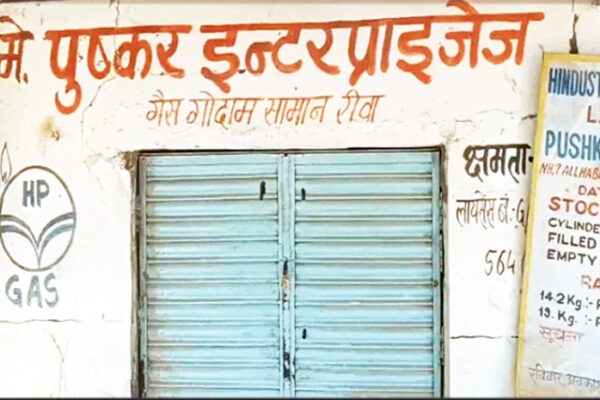 मे. पुष्कर इन्टरप्राइजेज
गैस गोदाम सामान रीवा
HP
GAS
क्षमता-
लायसेंस नं.:-G
564
HINDUST
L
PUSHK
NH.7 ALLHAB
DAT
STOC
CYLINDE
FILLED
EMPTY
RA
14.2 Kg.:-
19. Kg. :-
सूचना
रविवार अवकाश